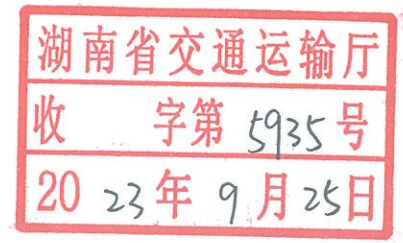 湖南省交通运输厅
收 字第 5935 号
20 23 年 9 月 25 日